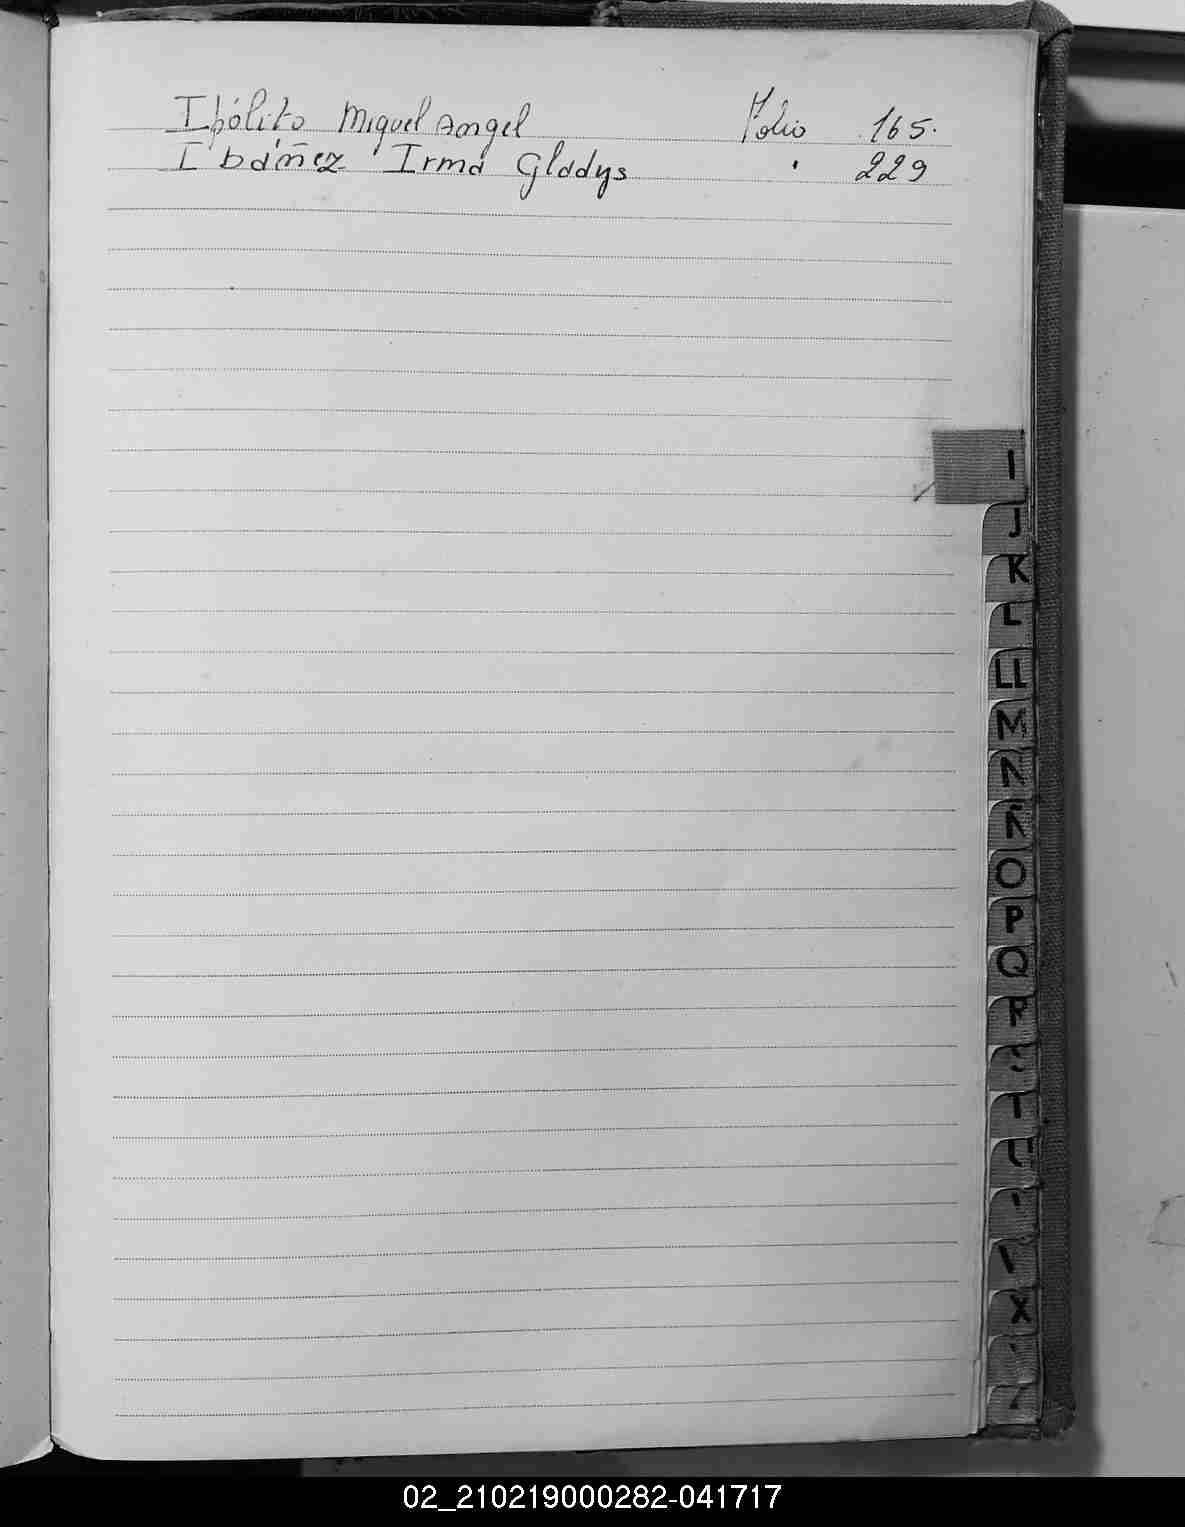 Ipólito Miguel Angel Folio 165.
Ibáñez Irma Gladys " 229
I
J
K
L
LL
M
N
Ñ
O
P
Q
R
T
X
02_210219000282-041717